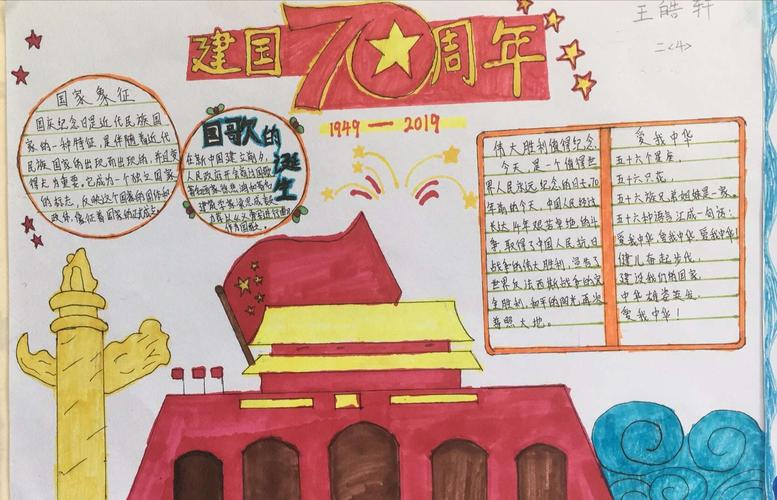 建国70周年
王皓轩
二<4>
1949—2019
国家象征
国庆纪念日是近代民族国
家的一种特征,是伴随着近代
民族国家的出现而出现的,并且变
得尤为重要。它成为一个独立国家
的标志,反映这个国家的国体和
政体,象征着国家的
国歌的诞生
在新中国建立前夕,
人民政府
伟大胜利值得纪念
今天,是一个值得世
界人民永远纪念的日子,70
年前的今天,中国人民经过
长达14年艰苦卓绝的斗
争,取得了中国人民抗日
战争的伟大胜利,宣告了
世界反法西斯战争的完
全胜利,和平的阳光再次
普照大地。
爱我中华
五十六个星座,
五十六只花,
五十六族兄弟姐妹是一家。
五十六种语言汇成一句话:
爱我中华 爱我中华 爱我中华!
健儿奋起步伐,
建设我们的国家,
中华雄姿英发,
爱我中华!